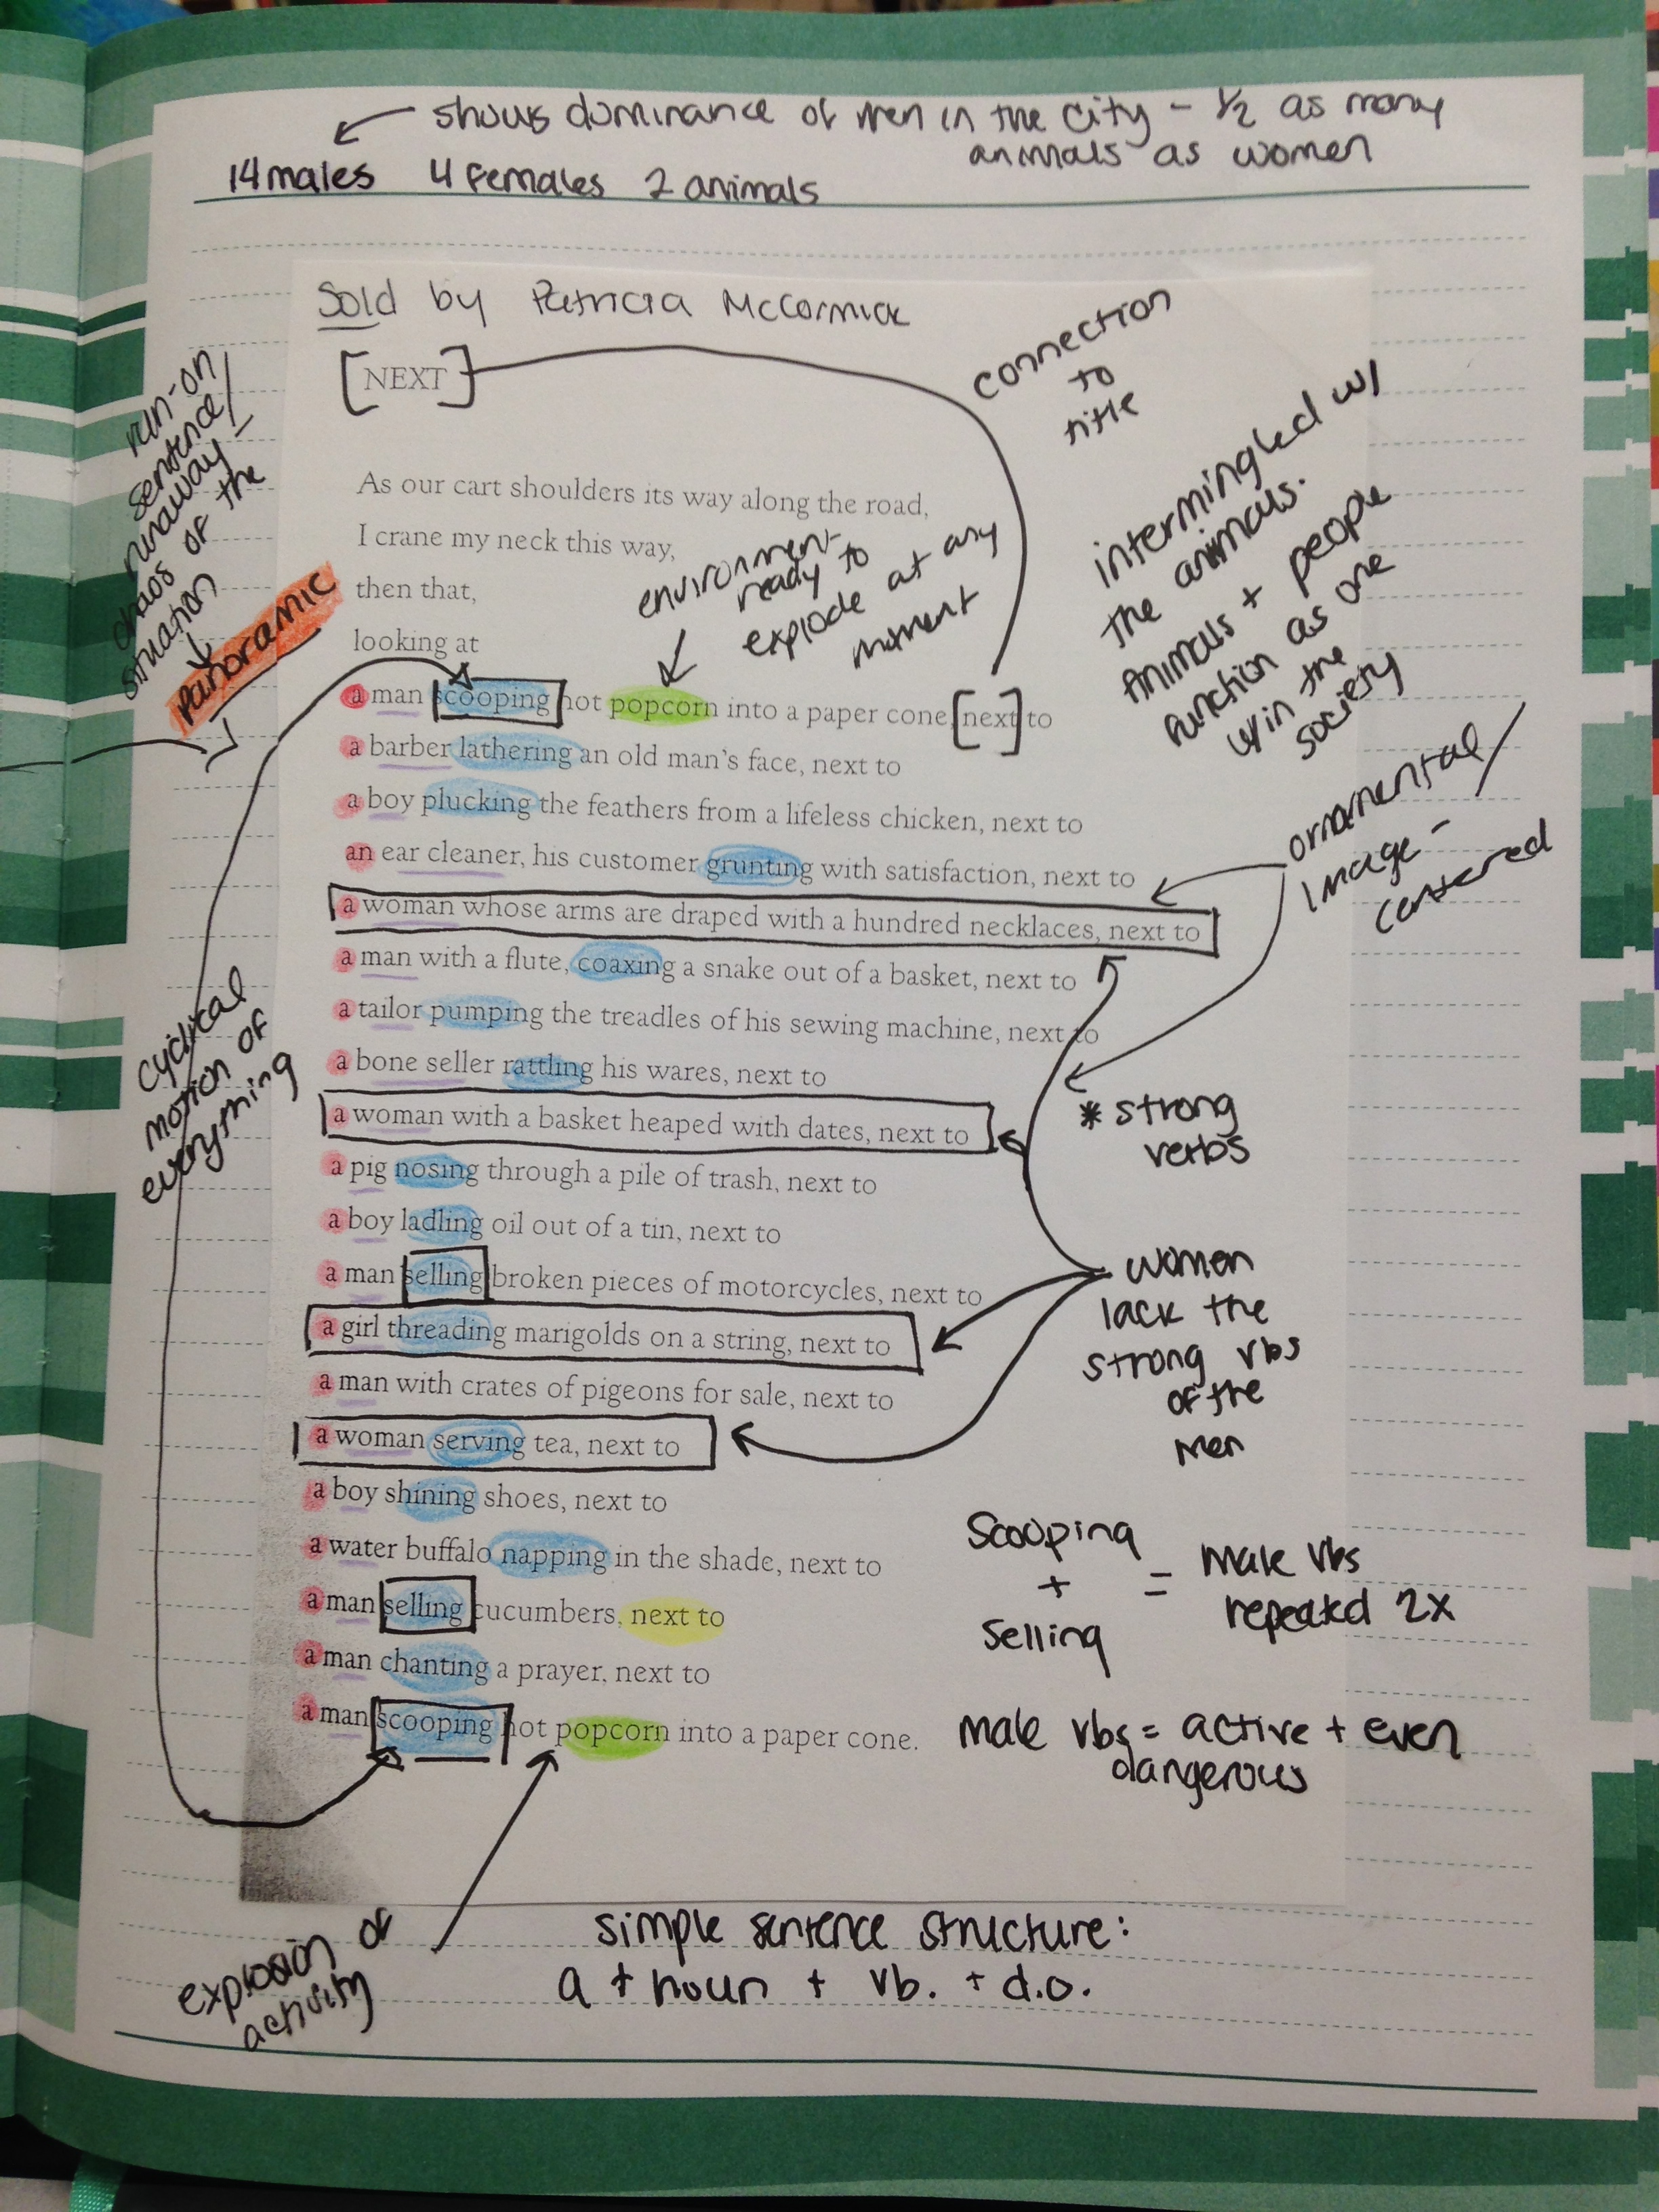 shows dominance of men in the city - 1/2 as many
animals as women
14 males 4 females 2 animals
Sold by Patricia McCormick
[NEXT]
connection
to
title
run-on
sentence/
runaway -
chaos of the
situation
Panoramic
As our cart shoulders its way along the road,
I crane my neck this way,
then that,
looking at
environment
ready to
explode at any
moment
intermingled w/
the animals.
Animals + people
function as one
w/in the
society
a man scooping hot popcorn into a paper cone, [next] to
a barber lathering an old man's face, next to
a boy plucking the feathers from a lifeless chicken, next to
an ear cleaner, his customer grunting with satisfaction, next to
a woman whose arms are draped with a hundred necklaces, next to
a man with a flute, coaxing a snake out of a basket, next to
a tailor pumping the treadles of his sewing machine, next to
a bone seller rattling his wares, next to
a woman with a basket heaped with dates, next to
a pig nosing through a pile of trash, next to
a boy ladling oil out of a tin, next to
a man selling broken pieces of motorcycles, next to
a girl threading marigolds on a string, next to
a man with crates of pigeons for sale, next to
a woman serving tea, next to
a boy shining shoes, next to
a water buffalo napping in the shade, next to
a man selling cucumbers, next to
a man chanting a prayer, next to
a man scooping hot popcorn into a paper cone.
ornamental/
image -
centered
cyclical
motion of
everything
* strong
verbs
women
lack the
strong vbs
of the
men
Scooping
+
Selling
= male vbs
repeated 2x
male vbs = active + even
dangerous
explosion of
activity
simple sentence structure:
a + noun + vb. + d.o.